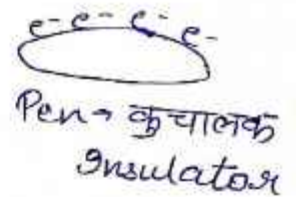 e⁻ e⁻ e⁻ e⁻
Pen → कुचालक
Insulator